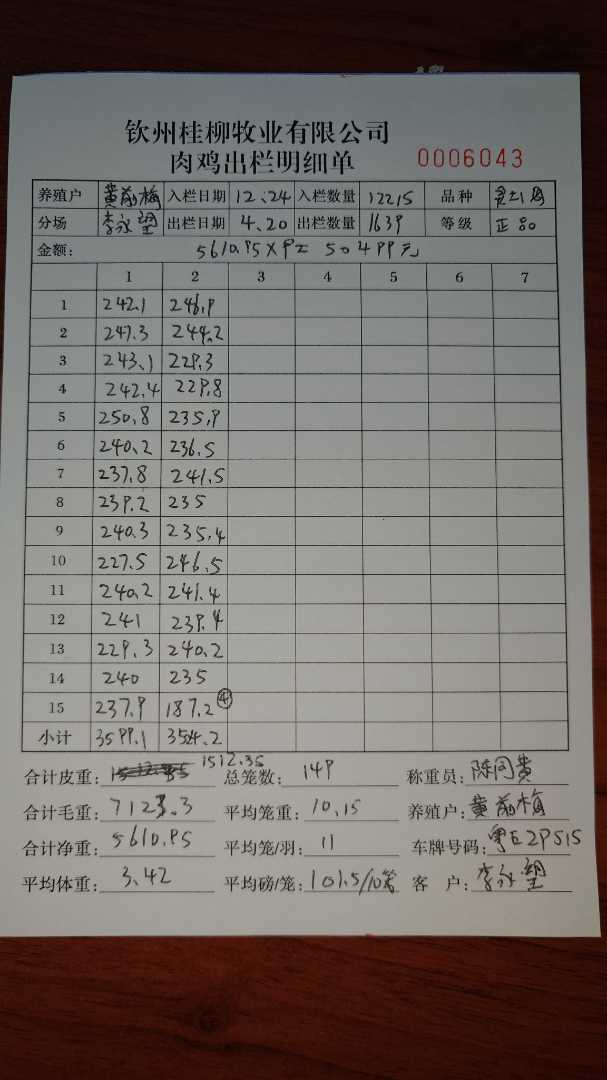 钦州桂柳牧业有限公司
肉鸡出栏明细单 0006043
养殖户 黄前梅 入栏日期 12.24 入栏数量 12215 品种
分场 李永 出栏日期 4.20 出栏数量 1639 等级 正品
金额: 5610.95×9= 50499元
1 2 3 4 5 6 7
1 242.1 246.9
2 247.3 244.2
3 243.1 229.3
4 242.4 229.8
5 250.8 235.9
6 240.2 236.5
7 237.8 241.5
8 239.2 235
9 240.3 235.4
10 227.5 246.5
11 240.2 241.4
12 241 239.4
13 229.3 240.2
14 240 235
15 237.9 187.2 ④
小计 3599.1 3524.2
合计皮重: 1512.35 总笼数: 149 称重员: 陈同贵
合计毛重: 7123.3 平均笼重: 10.15 养殖户: 黄前梅
合计净重: 5610.95 平均笼/羽: 11 车牌号码: 粤E29515
平均体重: 3.42 平均磅/笼: 101.5/10笼 客 户: 李永